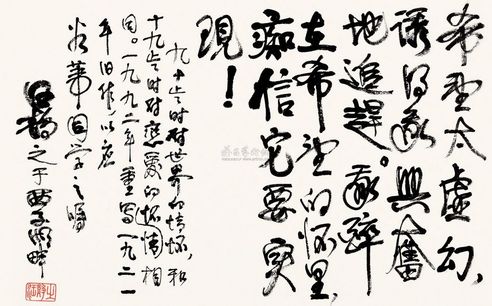 希望太虚幻,
诱得我興奮
地追趕。我醉
在希望的怀里,
痴信它要实
現!
九十岁时对世界的情怀,和
十九岁时对恋爱的怀情相
同。一九九二年重写一九二一
年旧作以应
谷苇同学之嘱
汪静之于西子湖畔